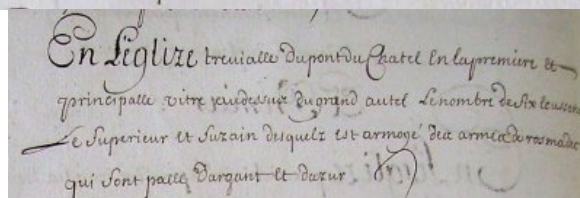 En Léglize trevialle dupont du Chatel En la premiere et
principalle vitre jau dessus du grand autel Le nombre de six
Le Superieur et Suzain desquelz est armogé des armes de rosmadec
qui sont pallé dargant et dazur